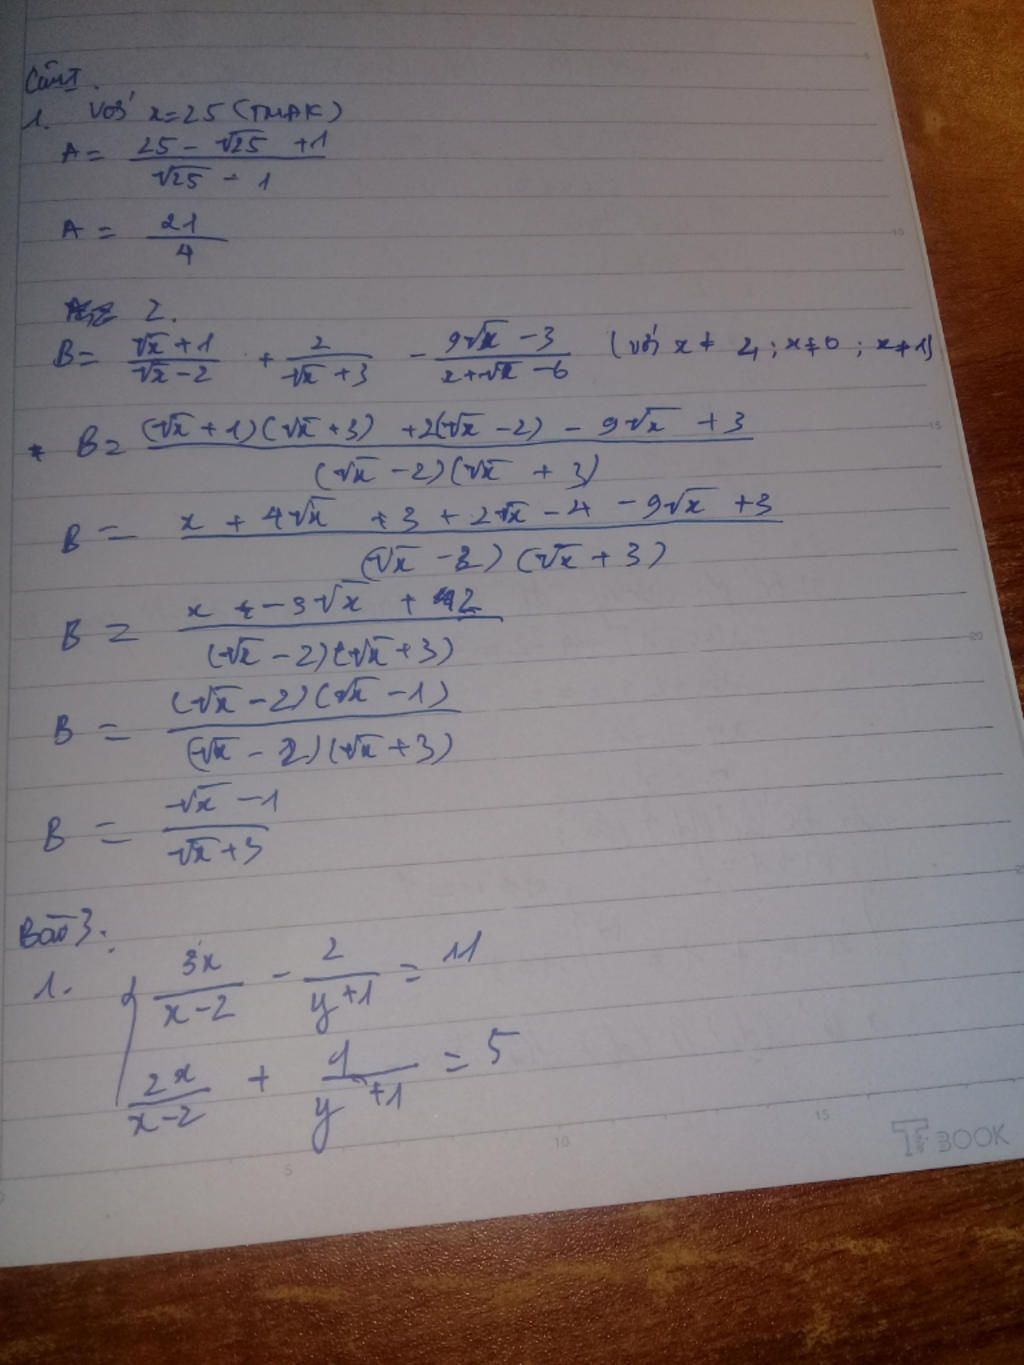 Câu I.
1. Với x=25 (TMĐK)
A = (25 - √25 + 1)/(√25 - 1)
A = 21/4
2.
B = (√x + 1)/(√x - 2) + 2/(√x + 3) - (9√x - 3)/(x + √x - 6) (với x ≠ 4; x ≠ 0; x ≠ 1)
* B = ((√x + 1)(√x + 3) + 2(√x - 2) - 9√x + 3)/((√x - 2)(√x + 3))
B = (x + 4√x + 3 + 2√x - 4 - 9√x + 3)/((√x - 2)(√x + 3))
B = (x - 3√x + 2)/((√x - 2)(√x + 3))
B = ((√x - 2)(√x - 1))/((√x - 2)(√x + 3))
B = (√x - 1)/(√x + 3)
Bài 3:
1. { 3x/(x - 2) - 2/(y + 1) = 11
2x/(x - 2) + 1/(y + 1) = 5
5 10 15
T BOOK